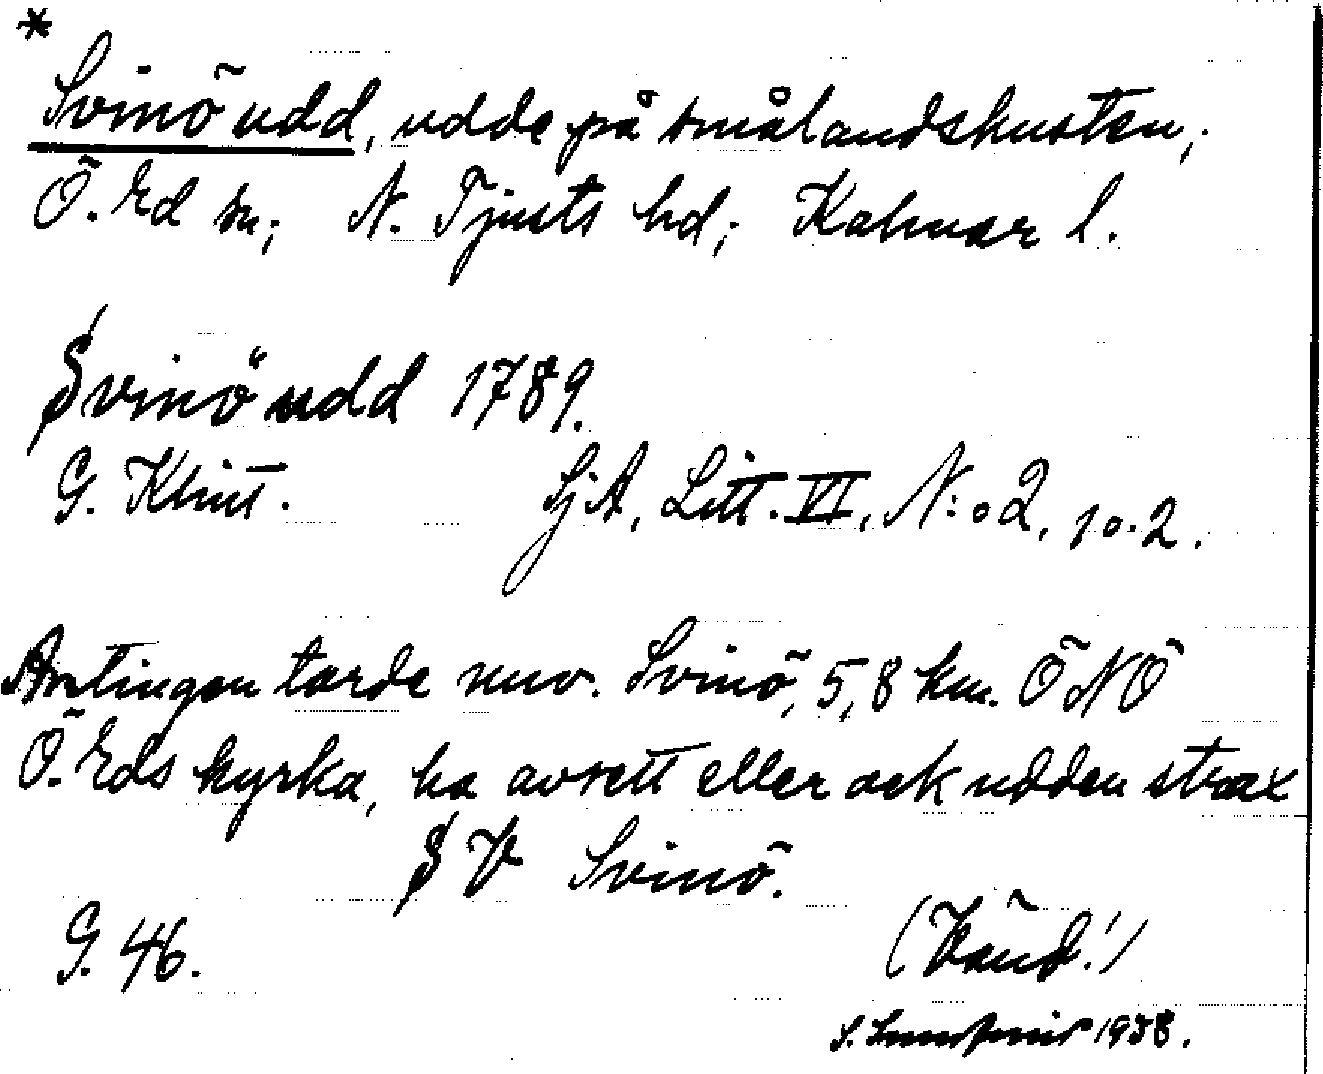 *
Svinö udd, udde på smålandskusten;
Ö. Ed sn; N. Tjusts hd; Kalmar l.
Svinö udd 1789.
G. Klint. SjA, Litt. VI, N:o 2, 10.2.
Antingen torde nuv. Svinö, 5,8 km. ÖNÖ
Ö. Eds kyrka, ha avsett eller ock udden strax
S V Svinö.
G. 46. (Vänd!)
S. 1938.